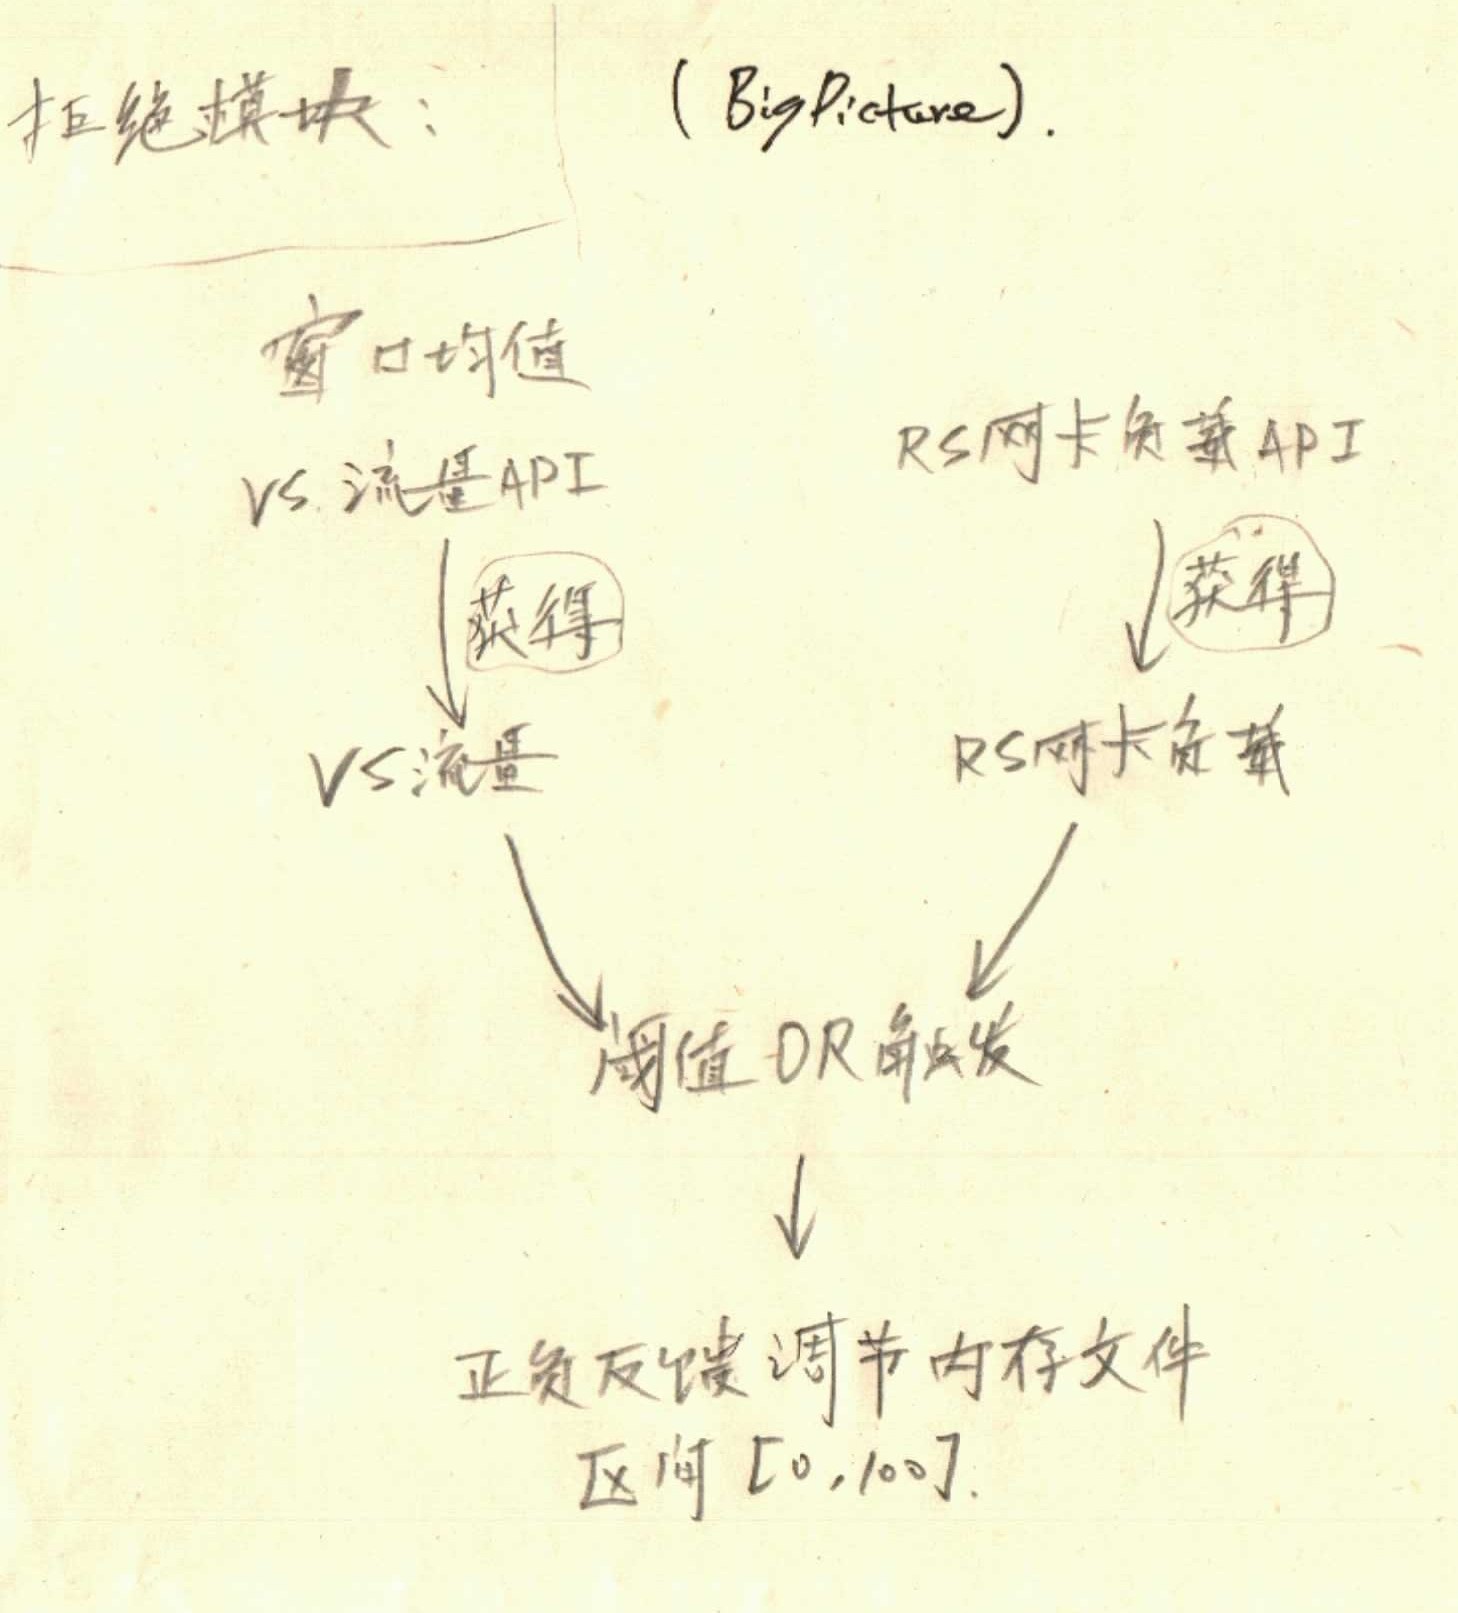 拒绝模块：
(BigPicture).
窗口均值
VS.流量API
RS网卡负载API
获得
获得
VS流量
RS网卡负载
阈值OR触发
正负反馈调节内存文件
区间[0,100].